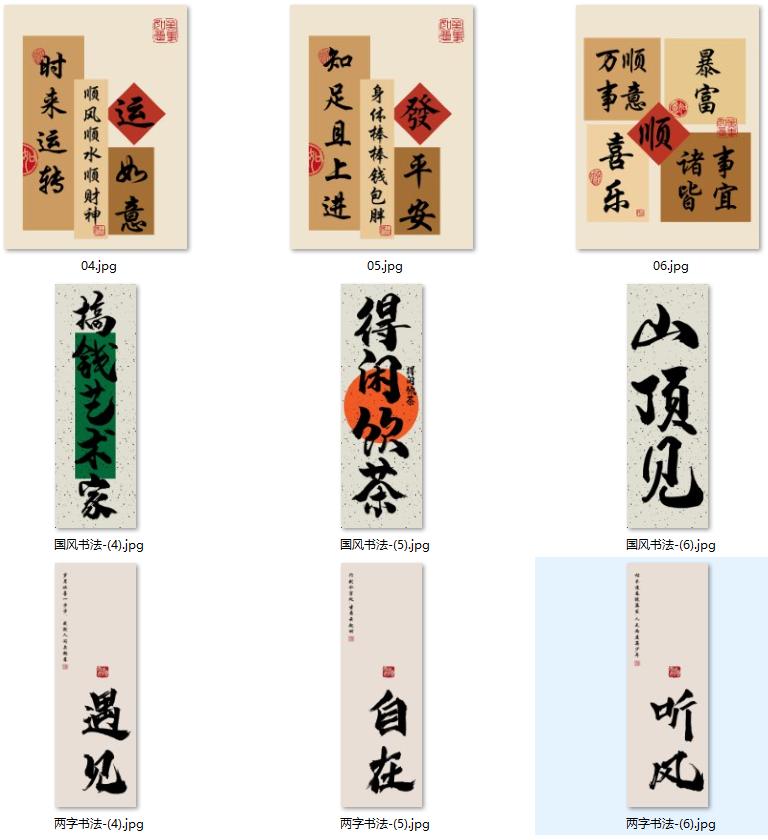 时来运转
顺风顺水顺财神
运
如意
知足且上进
身体棒棒钱包胖
發
平安
万事顺意
暴富
顺
喜乐
诸事皆宜
04.jpg
05.jpg
06.jpg
搞钱艺术家
得闲饮茶
得闲饮茶
山顶见
国风书法-(4).jpg
国风书法-(5).jpg
国风书法-(6).jpg
遇见
自在
听风
两字书法-(4).jpg
两字书法-(5).jpg
两字书法-(6).jpg